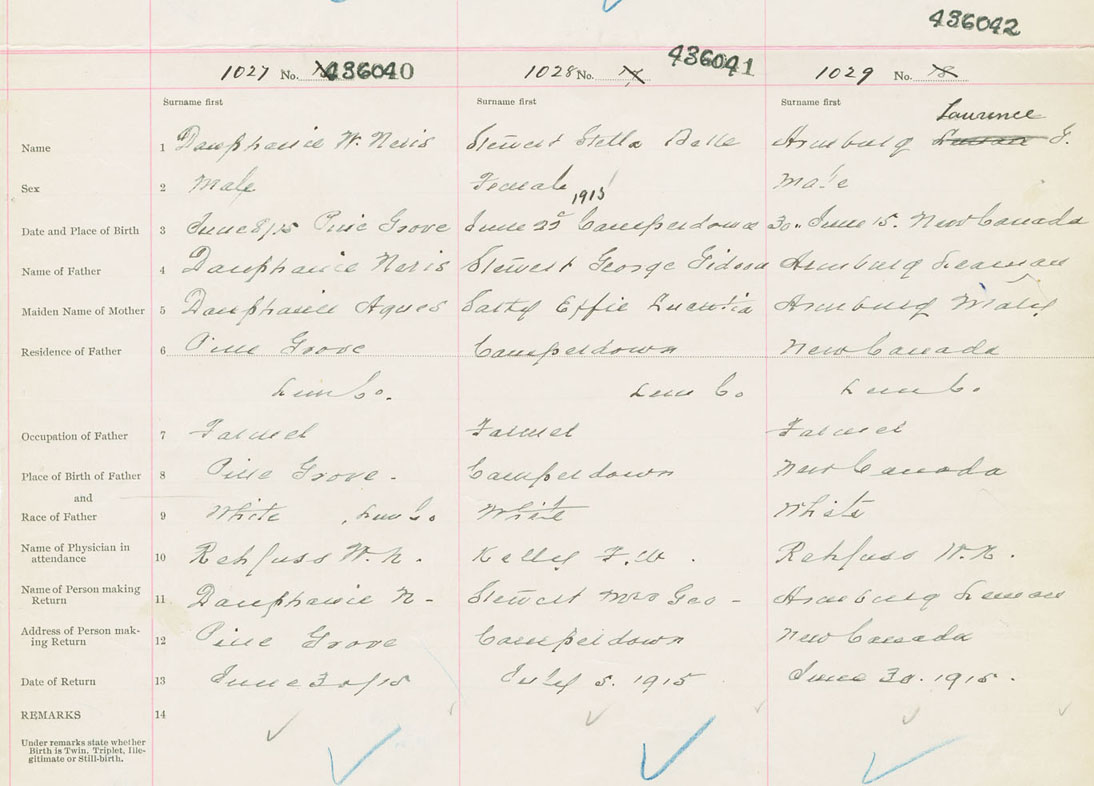 436042
1027 No. 436040 1028 No. 436041 1029 No. 78
Surname first Surname first Surname first
Laurence
Name 1 Dauphinie W. Neris Stewert Stella Belle Arenburg G.
Sex 2 Male Female Male
1915
Date and Place of Birth 3 June 8/15 Pine Grove June 22 Camperdown 30. June 15. New Canada
Name of Father 4 Dauphinie Neris Stewert George Gideon Arenburg Seaman
Maiden Name of Mother 5 Dauphinie Agnes Effie Lucretia Arenburg
Residence of Father 6 Pine Grove Camperdown New Canada
Lun Co. Lun Co Lun Co.
Occupation of Father 7 Farmer Farmer Farmer
Place of Birth of Father 8 Pine Grove - Camperdown New Canada
and
Race of Father 9 White , Lun Co White White
Name of Physician in
attendance 10 Rehfuss W. N. Kelly F. W. Rehfuss W. N.
Name of Person making
Return 11 Dauphinie N - Stewert Mrs Geo - Arenburg Seman
Address of Person mak-
ing Return 12 Pine Grove Camperdown New Canada
Date of Return 13 June 30/15 July 5. 1915 June 30. 1915.
REMARKS 14
Under remarks state whether
Birth is Twin, Triplet, Ille-
gitimate or Still-birth.